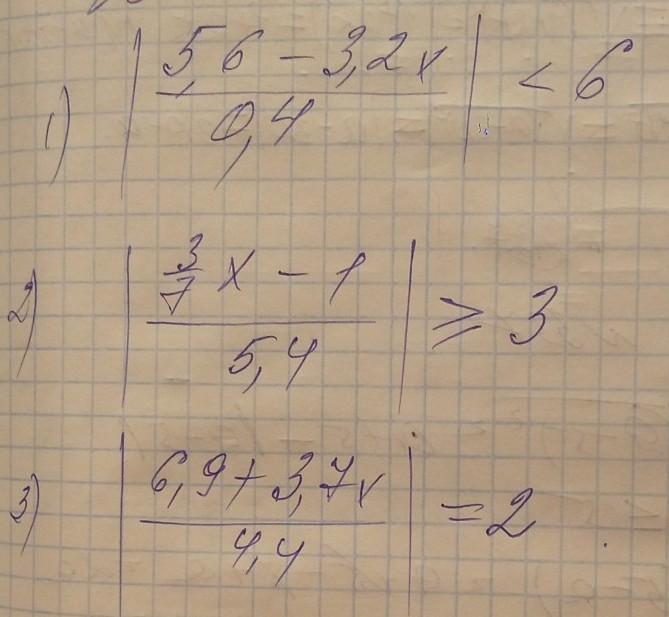 1) | (5,6 - 3,2x) / 0,4 | < 6
2) | (3/7 x - 1) / 5,4 | ≥ 3
3) | (6,9 + 3,7x) / 4,4 | = 2